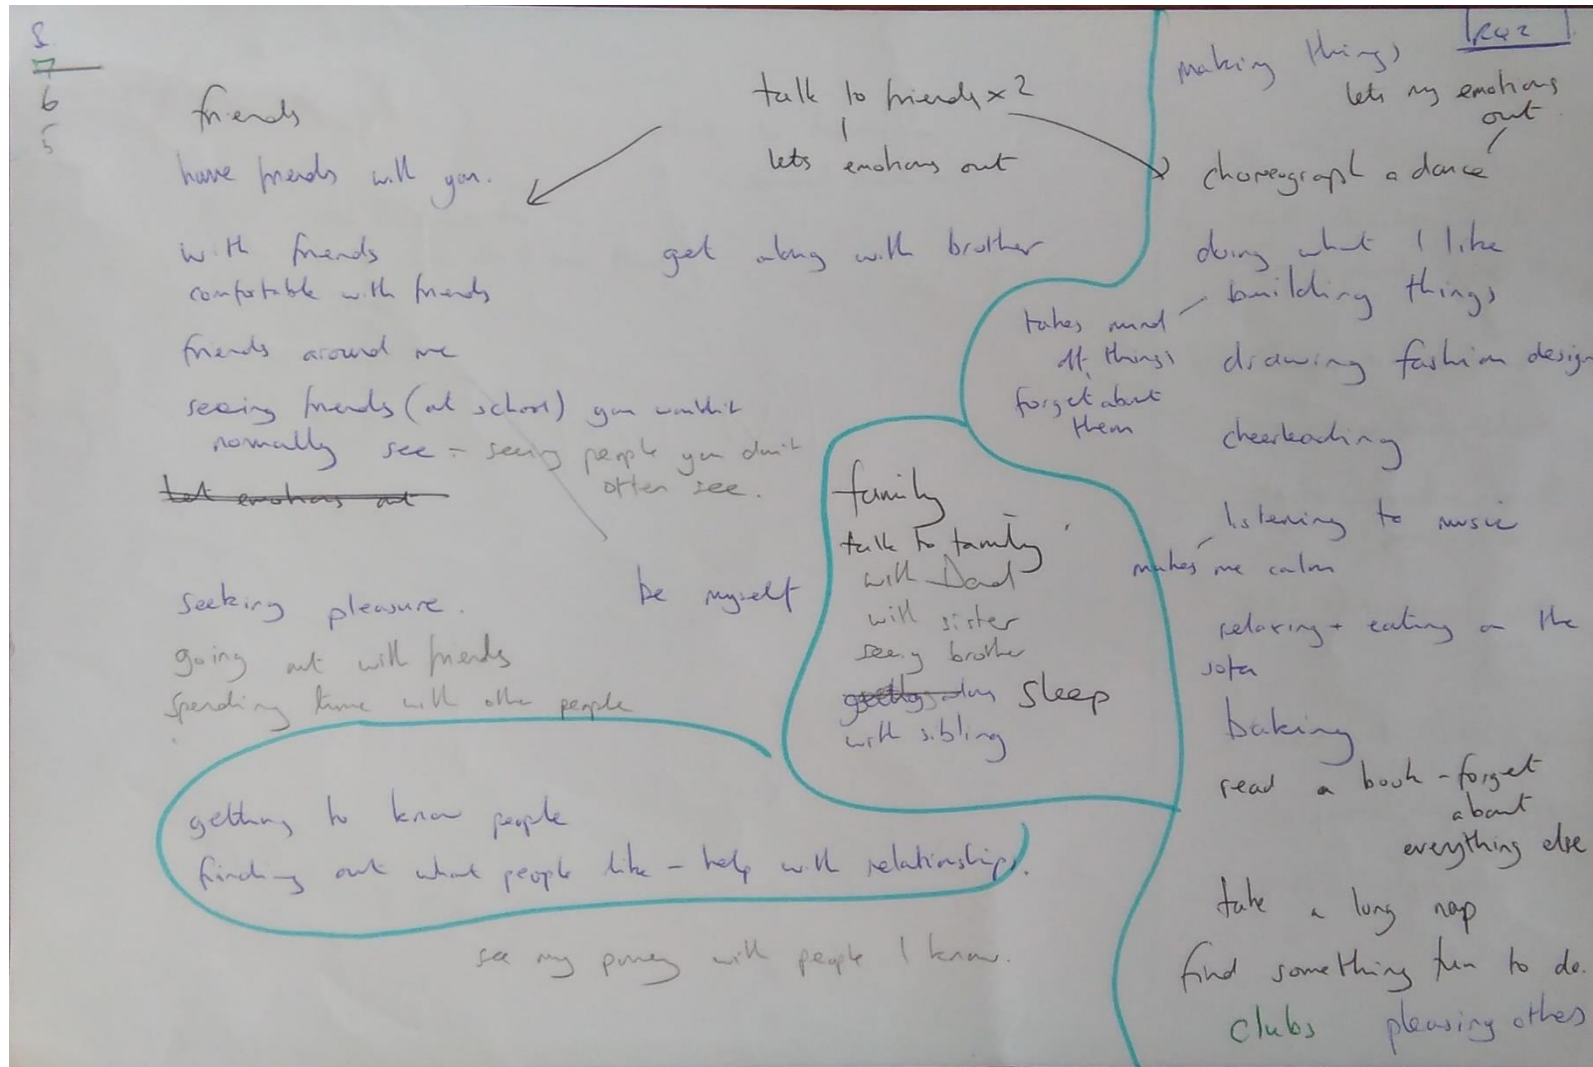 8
7
6
5
friends
have friends with you.
with friends
comfortable with friends
friends around me
seeing friends (at school) you wouldn't
normally see - seeing people you don't
often see.
Let emotions out
seeking pleasure.
going out with friends
spending time with other people
getting to know people
finding out what people like - help with relationships.
see my with people I know.
talk to friends x 2
lets emotions out
get along with brother
be myself
family
talk to family
with Dad
with sister
seeing brother
getting along
sleep
with sibling
RQ2
making things
lets my emotions
out
choreograph a dance
doing what I like
building things
takes mind
off things
forget about
them
drawing fashion design
cheerleading
listening to music
makes me calm
relaxing + eating on the
sofa
baking
read a book - forget
about
everything else
take a long nap
find something fun to do.
clubs pleasing others